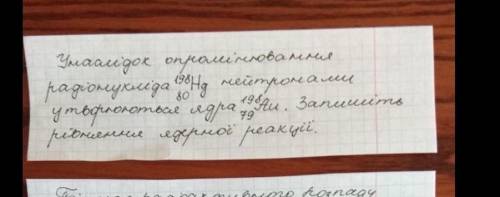 Унаслідок опромінювання
радіонукліда ¹⁹⁸₈₀Hg нейтронами
утворюються ядра ¹⁹⁸₇₉Au. Запишіть
рівняння ядерної реакції.